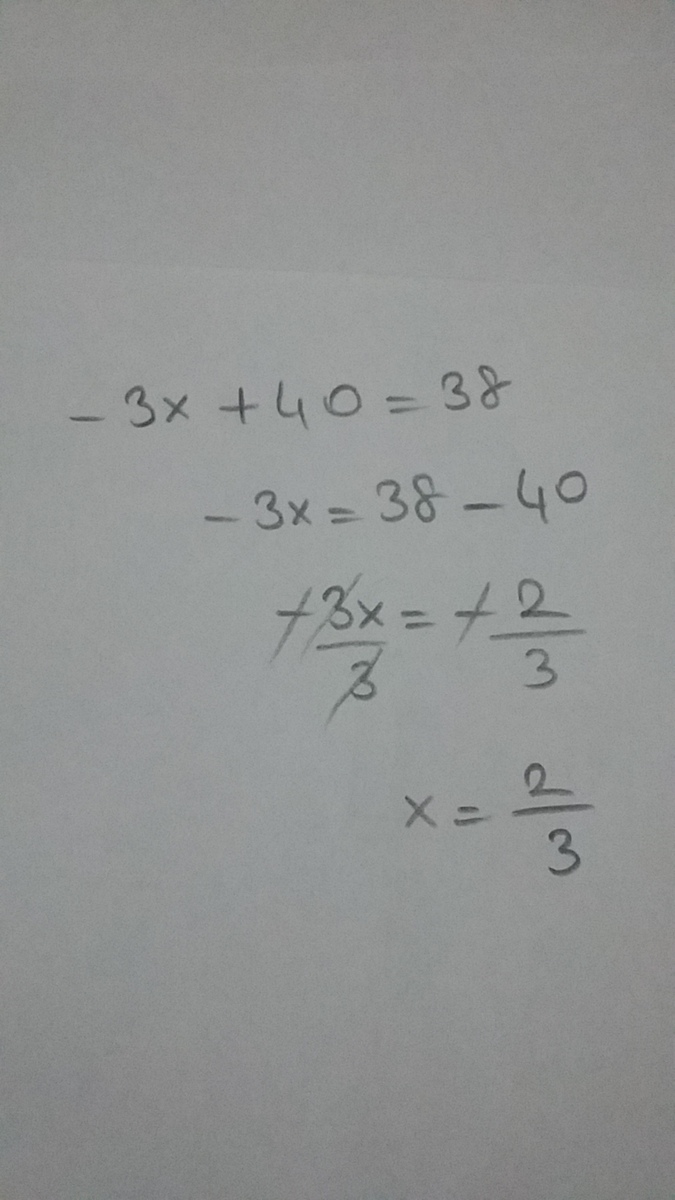 - 3x + 40 = 38
- 3x = 38 - 40
- 3x/3 = - 2/3
x = 2/3